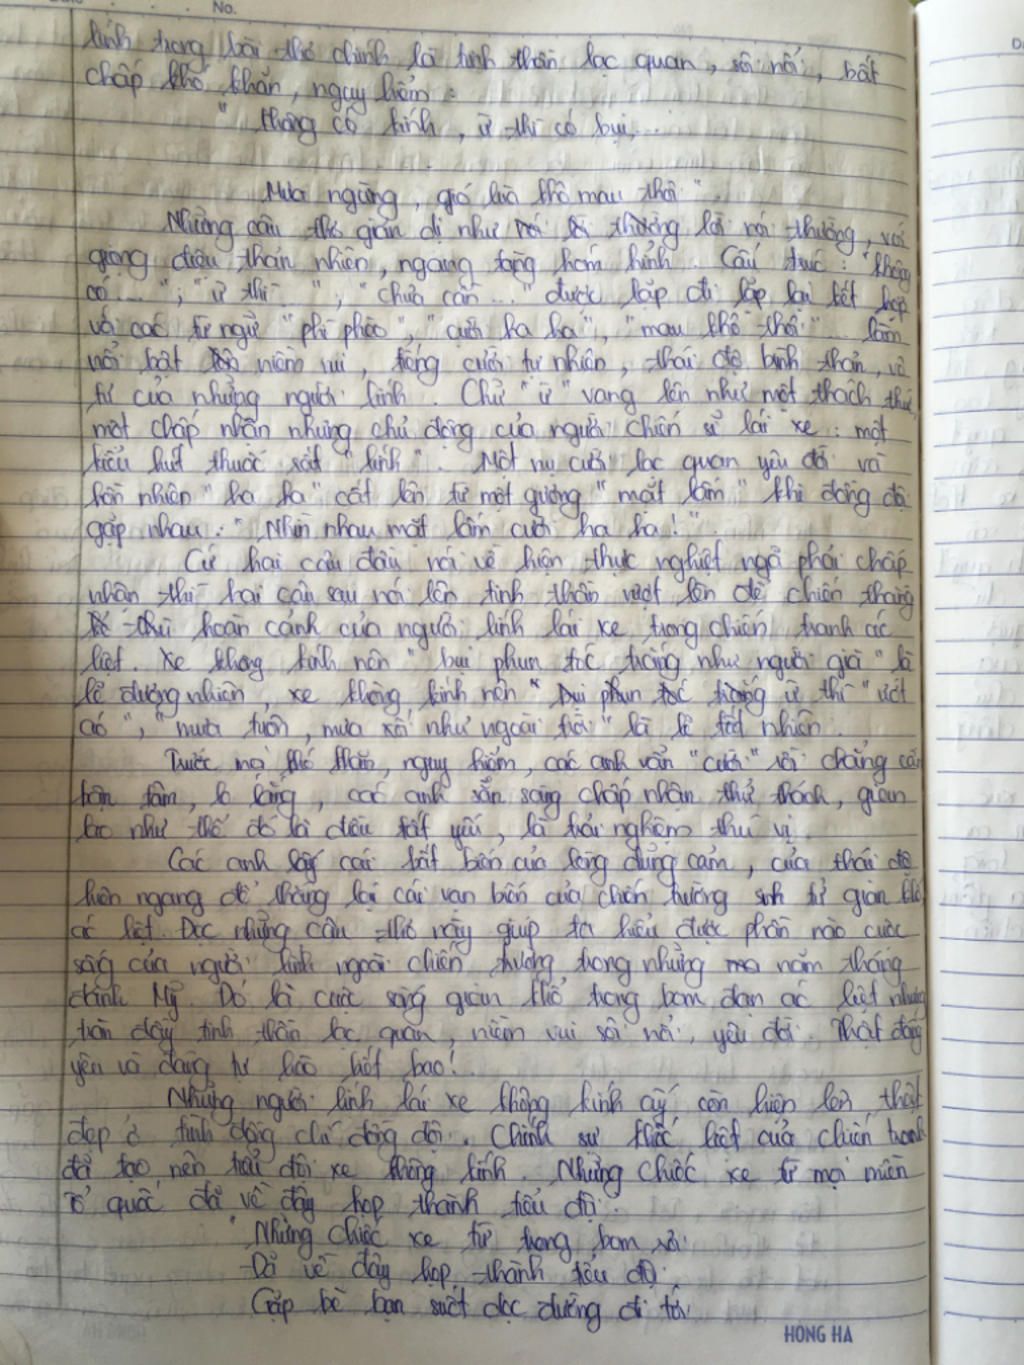 No.
lính trong bài thơ chính là tinh thần lạc quan, sôi nổi, bất
chấp khó khăn, nguy hiểm:
"Không có kính, ừ thì có bụi,...
Mưa ngừng, gió lùa khô mau thôi".
Những câu thơ giản dị như lời nói thường, với
giọng điệu thản nhiên, ngang tàng hóm hỉnh. Cấu trúc: "không
có..."; "ừ thì..."; "chưa cần..." được lặp đi lặp lại kết hợp
với các từ ngữ "phì phèo", "cười ha ha", "mau khô thôi"... làm
nổi bật niềm vui, tiếng cười tự nhiên, thái độ bình thản, vô
tư của những người lính. Chữ "ừ" vang lên như một thách thức
một chấp nhận nhưng chủ động của người chiến sĩ lái xe: một
kiểu hút thuốc rất "lính". Một nụ cười lạc quan yêu đời và
hồn nhiên "ha ha" cất lên từ một gương "mặt lấm" khi đồng đội
gặp nhau: "Nhìn nhau mặt lấm cười ha ha!".
Cứ hai câu đầu nói về hiện thực nghiệt ngã phải chấp
nhận thì hai câu sau nói lên tinh thần vượt lên để chiến thắng
hoàn cảnh của người lính lái xe trong chiến tranh ác
liệt. Xe không kính nên "bụi phun tóc trắng như người già" là
lẽ đương nhiên, xe không kính nên "ừ thì "ướt
áo", "mưa tuôn, mưa xối như ngoài trời" là lẽ tất nhiên.
Trước mọi khó khăn, nguy hiểm, các anh vẫn "cười" rồi chẳng cần
bận tâm, lo lắng, các anh sẵn sàng chấp nhận thử thách, gian
lao như thế đó là điều tất yếu, là trải nghiệm thú vị.
Các anh lấy cái bất biến của lòng dũng cảm, của thái độ
hiên ngang để thắng lại cái vạn biến của chiến trường sinh tử gian khổ,
ác liệt. Đọc những câu thơ này giúp ta hiểu được phần nào cuộc
sống của người lính ngoài chiến trường trong những năm tháng
đánh Mỹ. Đó là cuộc sống gian khổ trong bom đạn ác liệt nhưng
tràn đầy tinh thần lạc quan, niềm vui sôi nổi, yêu đời. Thật đáng
yêu và đáng tự hào biết bao!
Những người lính lái xe không kính ấy còn hiện lên thật
đẹp ở tình đồng chí đồng đội. Chính sự khốc liệt của chiến tranh
đã tạo nên tiểu đội xe không kính. Những chiếc xe từ mọi miền
Tổ quốc đã về đây họp thành tiểu đội.
"Những chiếc xe từ trong bom rơi
Đã về đây họp thành tiểu đội
Gặp bè bạn suốt dọc đường đi tới
HONG HA